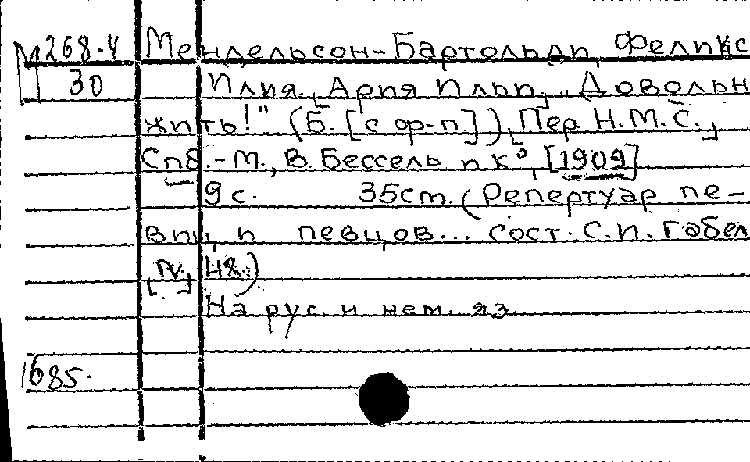 М268-4 Мендельсон-Бартольди, Феликс
30 Илия. [Ария Ильи] „Довольн
жить!" (Б. [с ф-п]). Пер. Н.М.С.
Спб.-М., В. Бессель и К°, [1909]
9 с. 35см. (Репертуар пе-
виц и певцов... сост. С.И. Габел
48.)
На рус. и нем. яз.
1685.